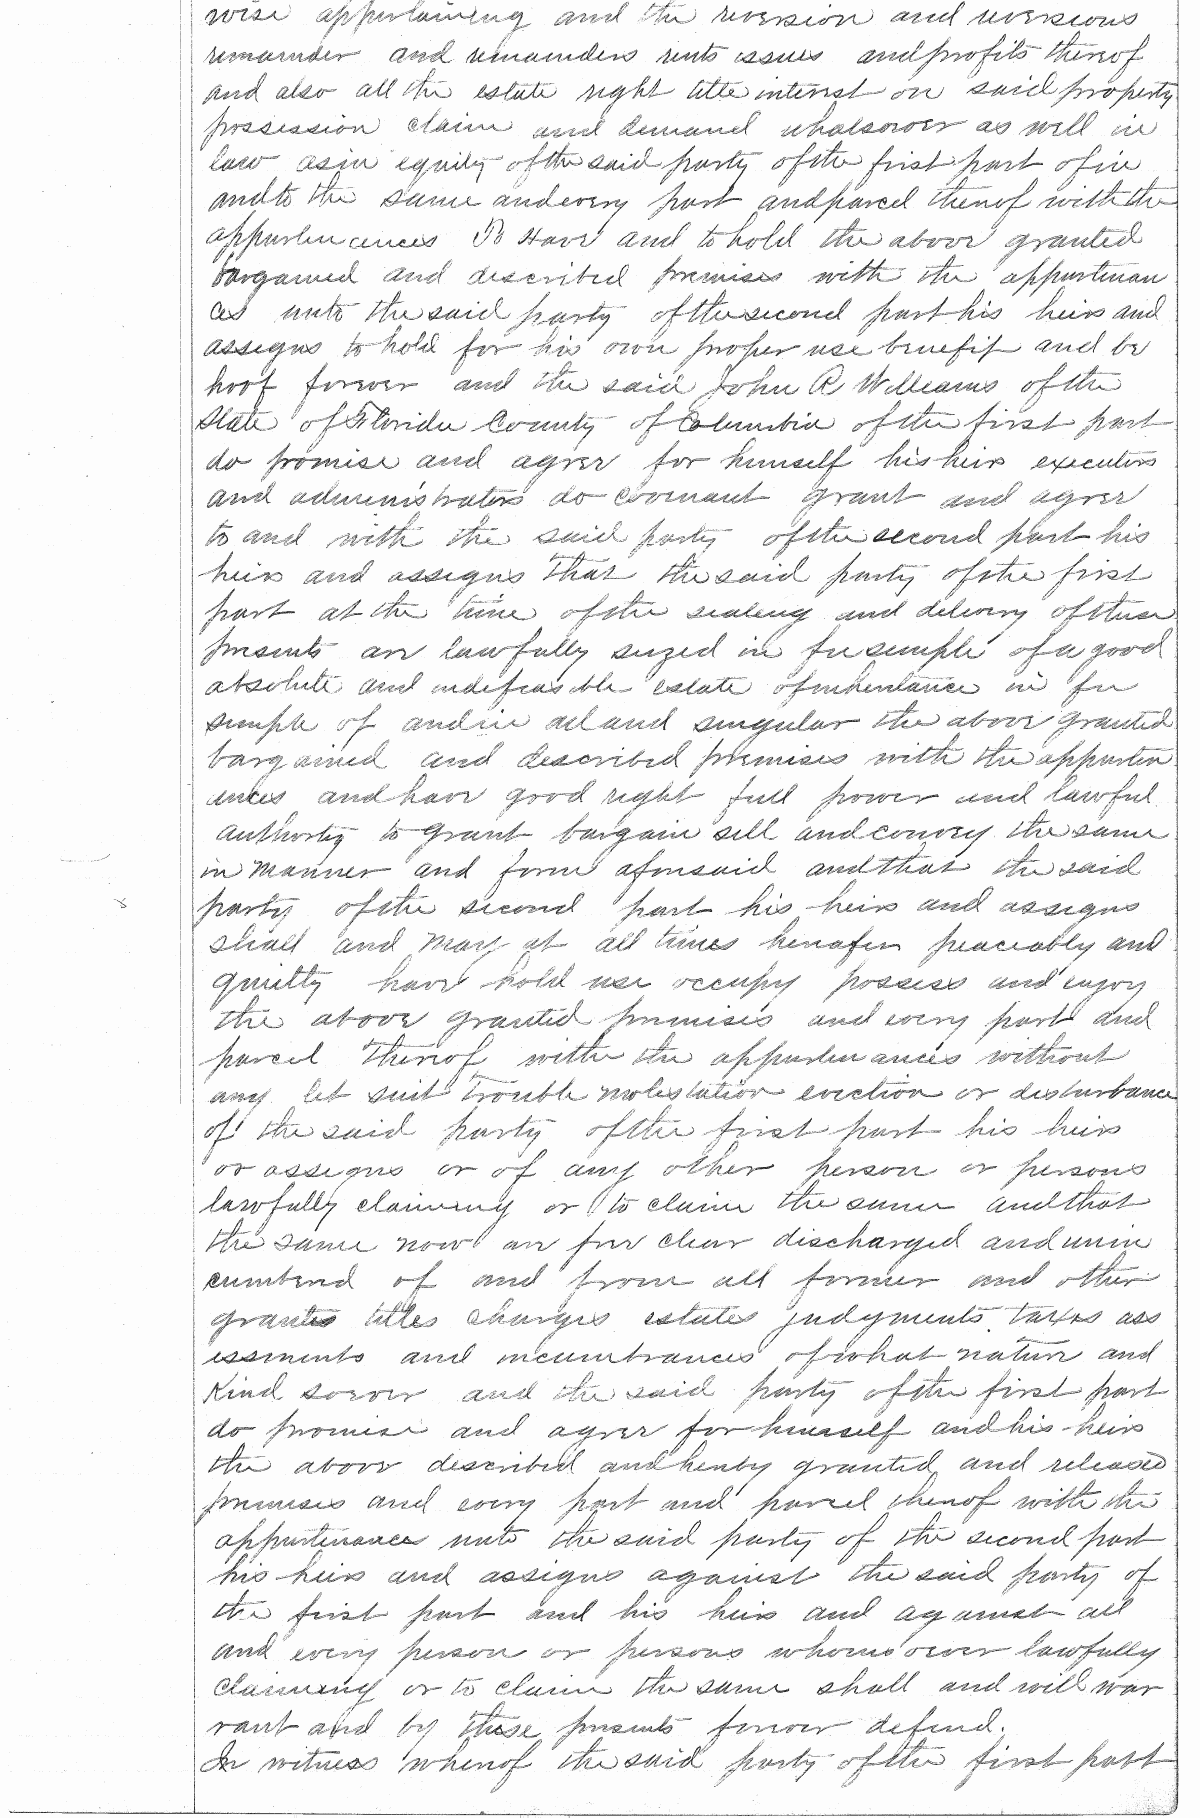 wise appertaining and the reversion and reversions
remainder and remainders rents issues and profits thereof
and also all the estate right title interest on said property
possession claim and demand whatsoever as well in
law as in equity of the said party of the first part of in
and to the same and every part and parcel thereof with the
appurtenances To Have and to hold the above granted
bargained and described premises with the appurtenan
ces unto the said party of the second part his heirs and
assigns to hold for his own proper use benefit and be
hoof forever and the said John R Williams of the
State of Florida County of Columbia of the first part
do promise and agree for himself his heirs executors
and administrators do covenant grant and agree
to and with the said party of the second part his
heirs and assigns That the said party of the first
part at the time of the sealing and delivery of these
presents are lawfully seized in fee simple of a good
absolute and indefeasible estate of inheritance in fee
simple of and in all and singular the above granted
bargained and described premises with the apperten
ances and have good right full power and lawful
authority to grant bargain sell and convey the same
in manner and form aforesaid and that the said
party of the second part his heirs and assigns
shall and may at all times hereafter peaceably and
quietly have hold use occupy possess and enjoy
the above granted premises and every part and
parcel thereof with the appurtenances without
any let suit trouble molestation eviction or disturbance
of the said party of the first part his heirs
or assigns or of any other person or persons
lawfully claiming or to claim the same and that
the same now are free clear discharged and unin
cumbered of and from all former and other
grants titles charges estates judgments taxes ass
essments and incumbrances of what nature and
kind soever and the said party of the first part
do promise and agree for himself and his heirs
the above described and hereby granted and released
premises and every part and parcel thereof with the
appurtenances unto the said party of the second part
his heirs and assigns against the said party of
the first part and his heirs and against all
and every person or persons whomsoever lawfully
claiming or to claim the same shall and will war
rant and by these presents forever defend.
In witness whereof the said party of the first part